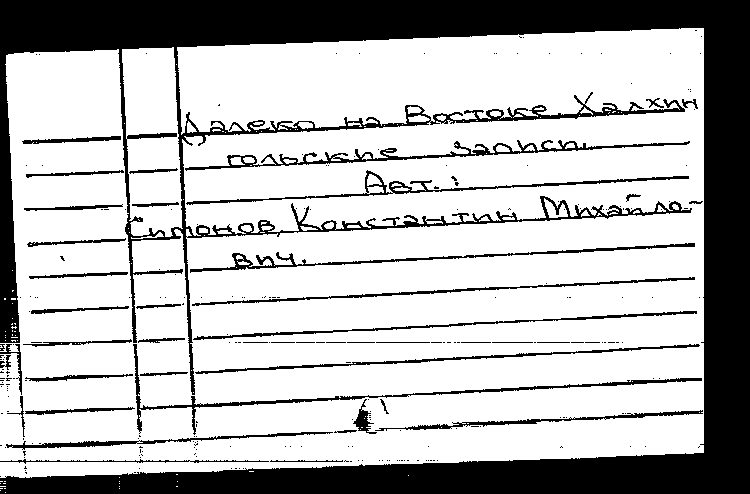 Далеко на Востоке. Халхин
гольские записи.
Авт.:
Симонов, Константин Михайло-
вич.